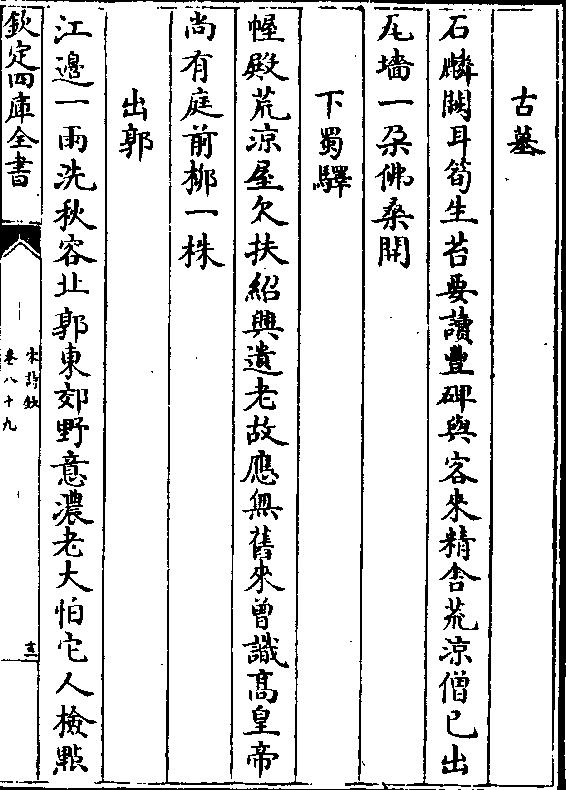 古墓
石麟闕耳筍生苔要讀豐碑與客來精舎荒凉僧已出
瓦墻一朶佛桑開
下蜀驛
幄殿荒凉屋欠扶紹興遺老故應無舊來曾識髙皇帝
尚有庭前栁一株
出郭
江邊一雨洗秋容北郭東郊野意濃老大怕它人檢㸃
欽定四庫全書
宋詩鈔
卷八十九